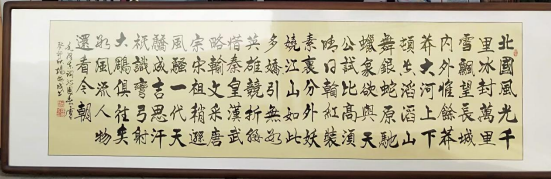 北國風光千
里冰封萬里
雪飄望長城
内外惟餘莽
莽大河上下
頓失滔滔山
舞銀蛇原馳
蠟象欲與天
公試比高須
晴日看紅裝
素裹分外妖
嬈江山如此
多嬌引無數
英雄競折腰
惜秦皇漢武
略輸文采唐
宗宋祖稍遜
風騷一代天
驕成吉思汗
祇識彎弓射
大鵰俱往矣
數風流人物
還看今朝